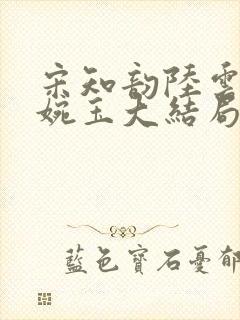 宋知韵陸雲
婉玉大結局
藍色寶石憂郁